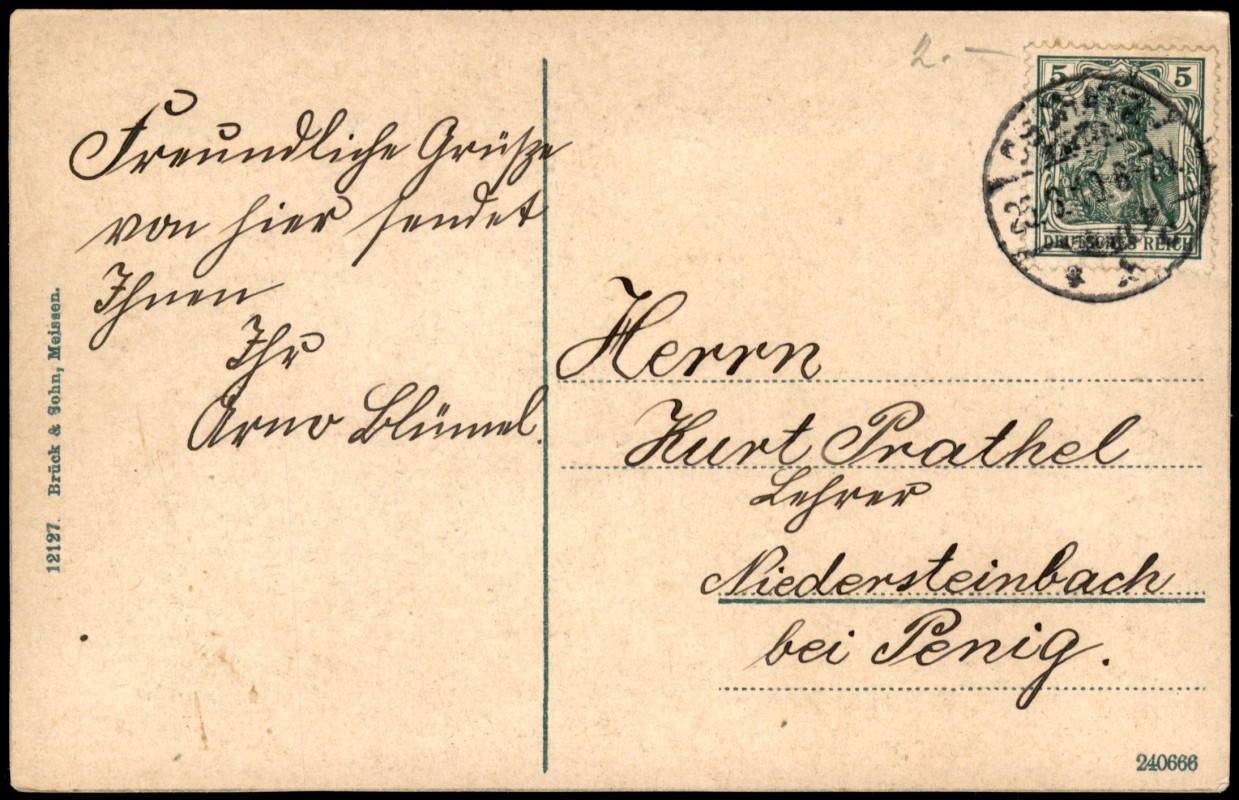 2.—
5 5
DEUTSCHES REICH
Freundliche Grüße
von hier sendet
Ihnen
Ihr
Arno Blümel.
Herrn
Kurt Prathel
Lehrer
Niedersteinbach
bei Penig.
12127. Brück & Sohn, Meissen.
240666